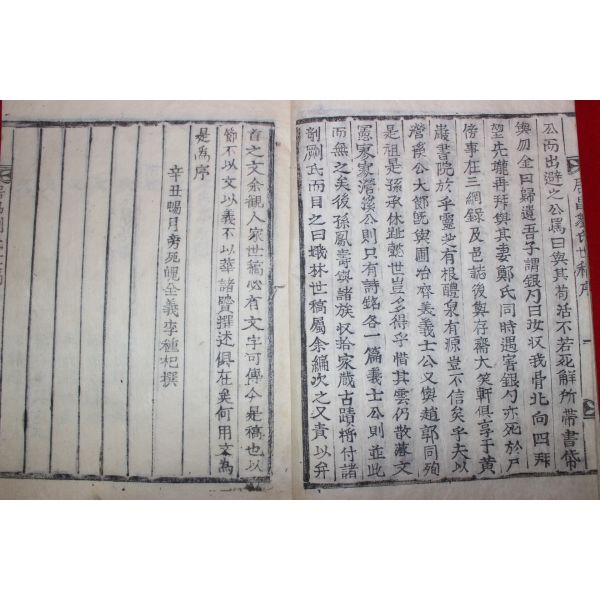 公而出避之公罵曰與其苟活不若死解所帶書帒
與勿金曰歸遺吾子謂銀勺曰汝收我骨北向四拜
望先壠再拜與其妻鄭氏同時遇害銀勺亦死於尸
傍事在三綱錄及邑誌後與存齋大笑軒俱享于黃
巖書院於乎靈芝有根醴泉有源豈不信矣乎夫以
潛溪公大節旣與圃冶齊美義士公又與趙郭同殉
是祖是孫承休趾懿世豈多得乎惜其雲仍散落文
憲寥寥潛溪公則只有詩銘各一篇義士公則並此
而無之矣後孫鳳壽與諸族收拾家藏古蹟將付諸
剞劂氏而目之曰娥林世稿屬余編次之又責以弁
首之文余觀人家世稿必有文字可傳今是稿也以
節不以文以義不以華諸賢撰述俱在矣何用文爲
是爲序
辛丑暢月旁死魄全義李種杞撰